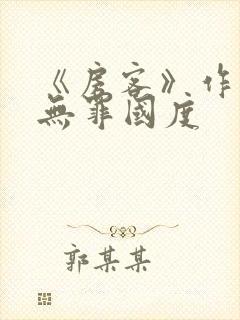 《房客》作
無罪國度
郭某某